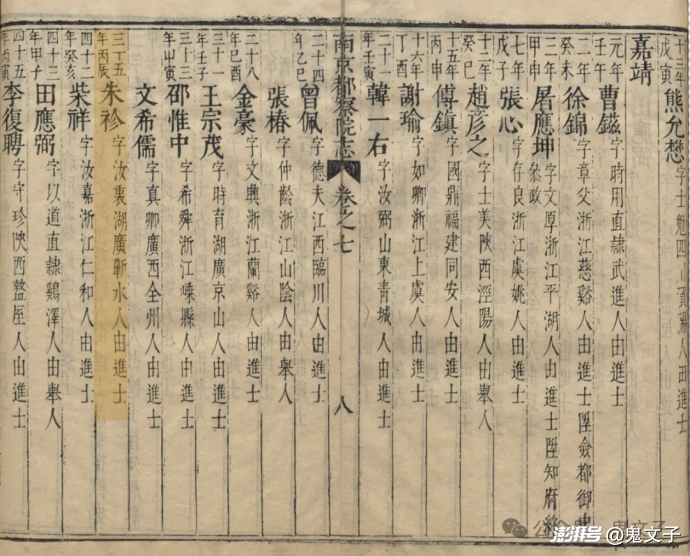 十三年戊寅 熊允懋 字士勉四川人由進士
嘉靖
元年壬午 曹鎡 字時用直隸武進人由進士
二年癸未 徐錦 字章父浙江慈谿人由進士陞僉都御史
三年甲申 屠應坤 字文厚浙江平湖人由進士陞知府終叅政
七年戊子 張心 字存良浙江虞姚人由進士
十二年癸巳 趙彥之 字士美陝西涇陽人由舉人
十五年丙申 傅鎮 字國鼎福建同安人由進士
十六年丁酉 謝瑜 字如卿浙江上虞人由進士
二十一年壬寅 韓一右 字汝弼山東青城人由進士
南京都察院志 卷之七 八
二十四年乙巳 曾佩 字德夫江西臨川人由進士
張椿 字仲齡浙江山陰人由舉人
二十八 金豪 字文典浙江蘭谿人由進士
三十一年壬子 王宗茂 字時育湖廣京山人由進士
三十三年甲寅 邵惟中 字希舜浙江嵊縣人由進士
文希儒 字真卿廣西全州人由進士
三十五年丙辰 朱袗 字汝裏湖廣蘄水人由進士
四十二年癸亥 柴祥 字汝嘉浙江仁和人由進士
四十三年甲子 田應弼 字以道直隸鷄澤人由舉人
四十五年丙寅 李復聘 字守珍陝西盩厔人由進士
澎湃号@鬼文子